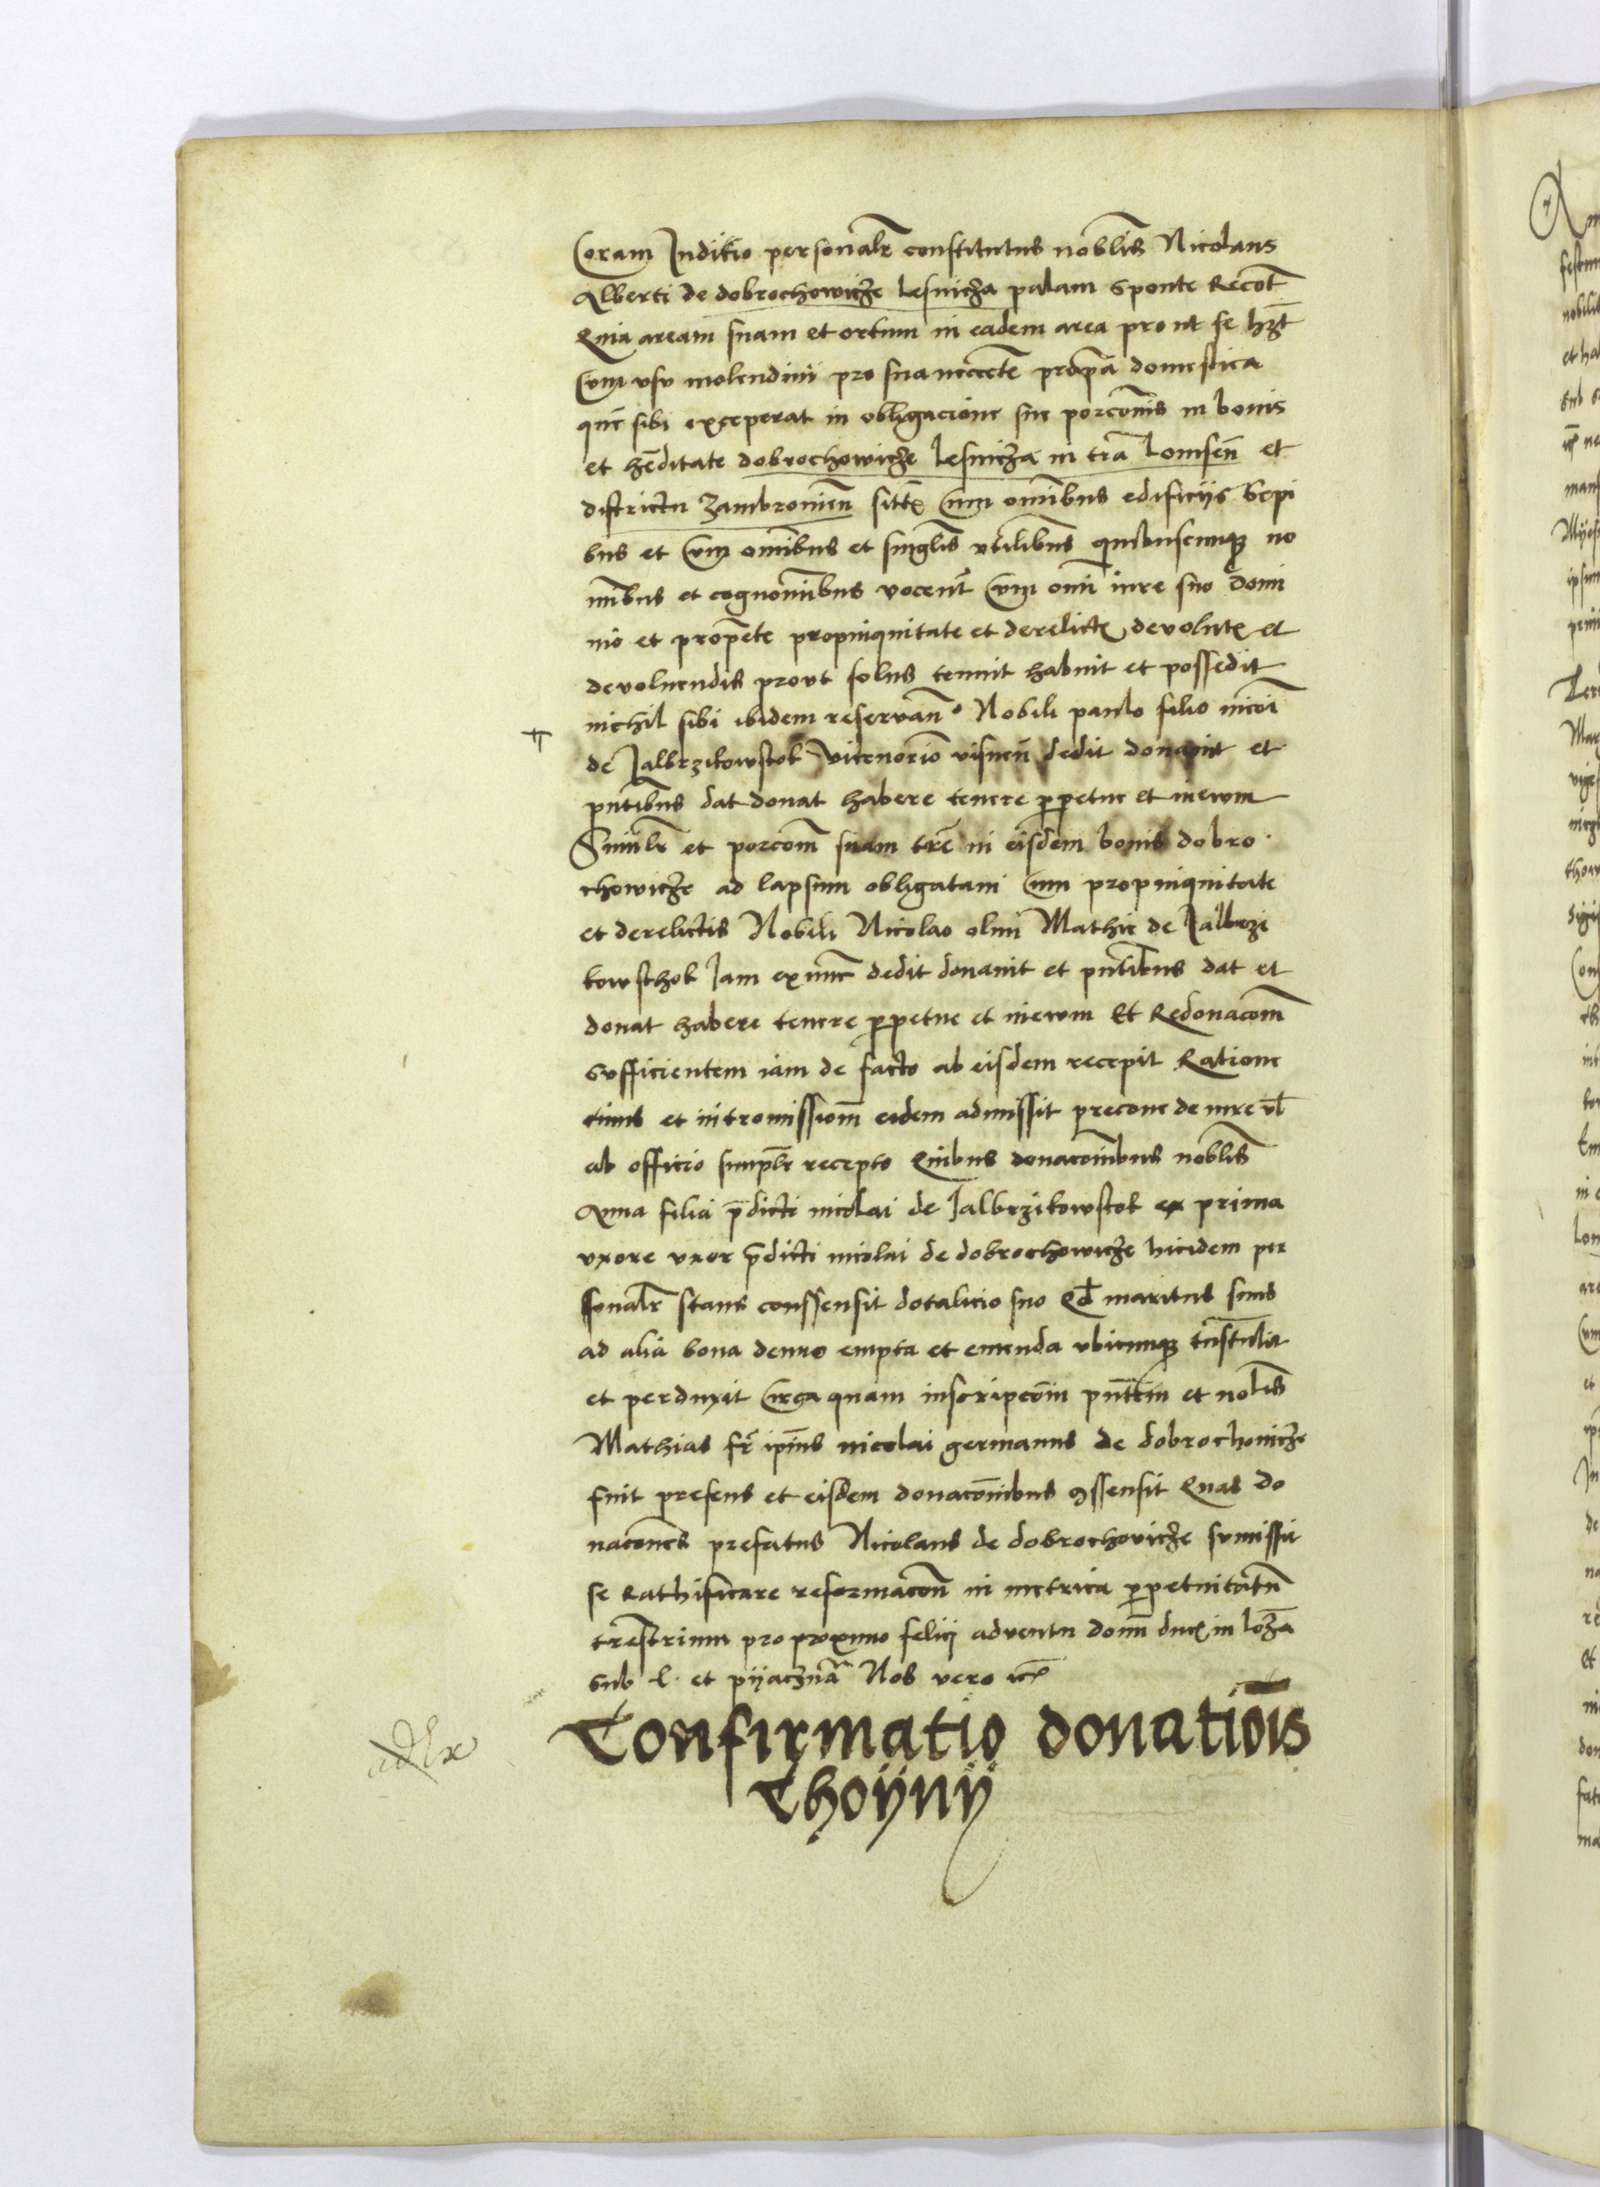 Coram Judicio personalr constitutus noblis Nicolaus
Alberti de dobrochowicze lesnicza palam sponte Recot
Quia aream suam et ortum in eadem area prout se hzt
Cum usu molendini pro sua neccte propa domestica
que sibi exceperat in obligacione sue porconis in bonis
et heditate dobrochowicze lesnicza in tra lomsen et
districtu Zambromien sitt Cum omibus edificiis Sepi
bus et Cum omibus et singlis utilibus quibuscunque no
mibus et cognomibus vocent Cum omi iure suo domi
nio et propete propinquitate et derelict devolut et
devoluendis prout solus tenuit habuit et possedit
nichil sibi ibidem reservan Nobili paulo filio nicoi
de Jalbrzikowstok vicenorio visnen dedit donavit et
pntibus dat donat habere tenere ppetue et in ewm
Similr et porcom suam tre in eisdem bonis dobro
chowicze ad lapsum obligatam Cum propinquitate
et derelictis Nobili Nicolao olim Mathie de Jalbrzi
kowsthok Jam ex nunc dedit donavit et pntibus dat et
donat habere tenere ppetue et in ewm Et Redonacom
sufficientem iam de facto ab eisdem recepit Ratione
cuius et intromissiom eidem admissit precone de iure vl
ab officio simplr recepto Quibus donacoibus noblis
Anna filia pdicti nicolai de Jalbrzikowstok ex prima
uxore uxor pdicti nicolai de dobrochowicze hicidem per
sonalr stans conssensit dotalicio suo Qd maritus suus
ad alia bona denuo empta et emenda ubicunque tnstulit
et perduxit Circa quam inscripcom pntem et noblis
Mathias fr ipius nicolai germanus de dobrochowicze
fuit presens et eisdem donacoibus conssensit Quas do
nacones prefatus Nicolaus de dobrochovicze sumissit
se Rathificare reformacom in metrica ppetuitatu
trestrium pro proximo felici adventu domi duc in lomza
sub l. et pyaczna Nos vero etc
Confirmatio donatiois
Choyny